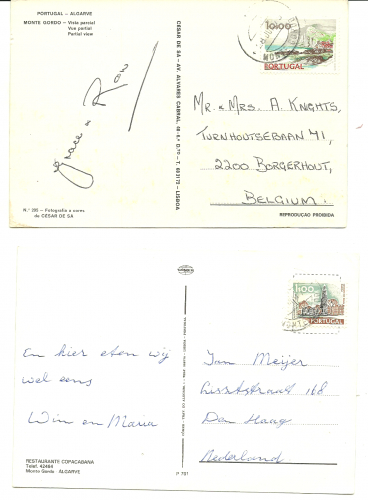 PORTUGAL - ALGARVE
MONTE GORDO - Vista parcial
Vue partiel
Partial view
Grace & Ron
N.º 295 - Fotografia e cores
de CÉSAR DE SÁ
CÉSAR DE SÁ - AV. ALVARES CABRAL
LISBOA
10$00
PORTUGAL
MR. & MRS. A. KNIGHTS,
TURNHOUTSEBAAN 71,
2200 BORGERHOUT,
BELGIUM.
REPRODUÇÃO PROIBIDA
En hier eten wij
wel eens
Wim en Maria
RESTAURANTE COPACABANA
Telef. 42464
Monte Gordo - ALGARVE
P 791
1$00
PORTUGAL
Jan Meijer
Lisztstraat 168
Den Haag
Nederland